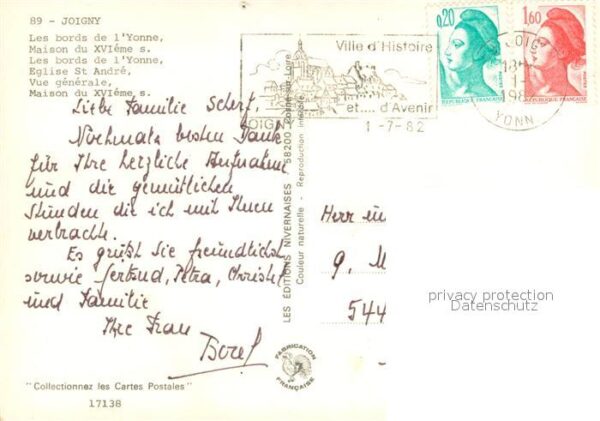 89 - JOIGNY
Les bords de l'Yonne,
Maison du XVIéme s.
Les bords de l'Yonne,
Eglise St André,
Vue générale,
Maison du XVIéme s.
Liebe Familie Scherf,
Nochmals besten Dank
für Ihre herzliche Aufnahme
und die gemütlichen
Stunden die ich mit Ihnen
verbrachte.
Es grüßt Sie freundlichst
sowie Gertrud, Petra, Christel
und Familie
Ihre Frau
Borel
"Collectionnez les Cartes Postales"
17138
LES EDITIONS NIVERNAISES - 58200 Cosne-sur-Loire
Couleur naturelle - Reproduction interdite
FABRICATION
FRANÇAISE
JOIGNY
Ville d'Histoire
et.... d'Avenir
1-7-82
0,20
REPUBLIQUE FRANÇAISE
1,60
REPUBLIQUE FRANÇAISE
JOIG
YONN
Herr un
9. M
544
privacy protection
Datenschutz